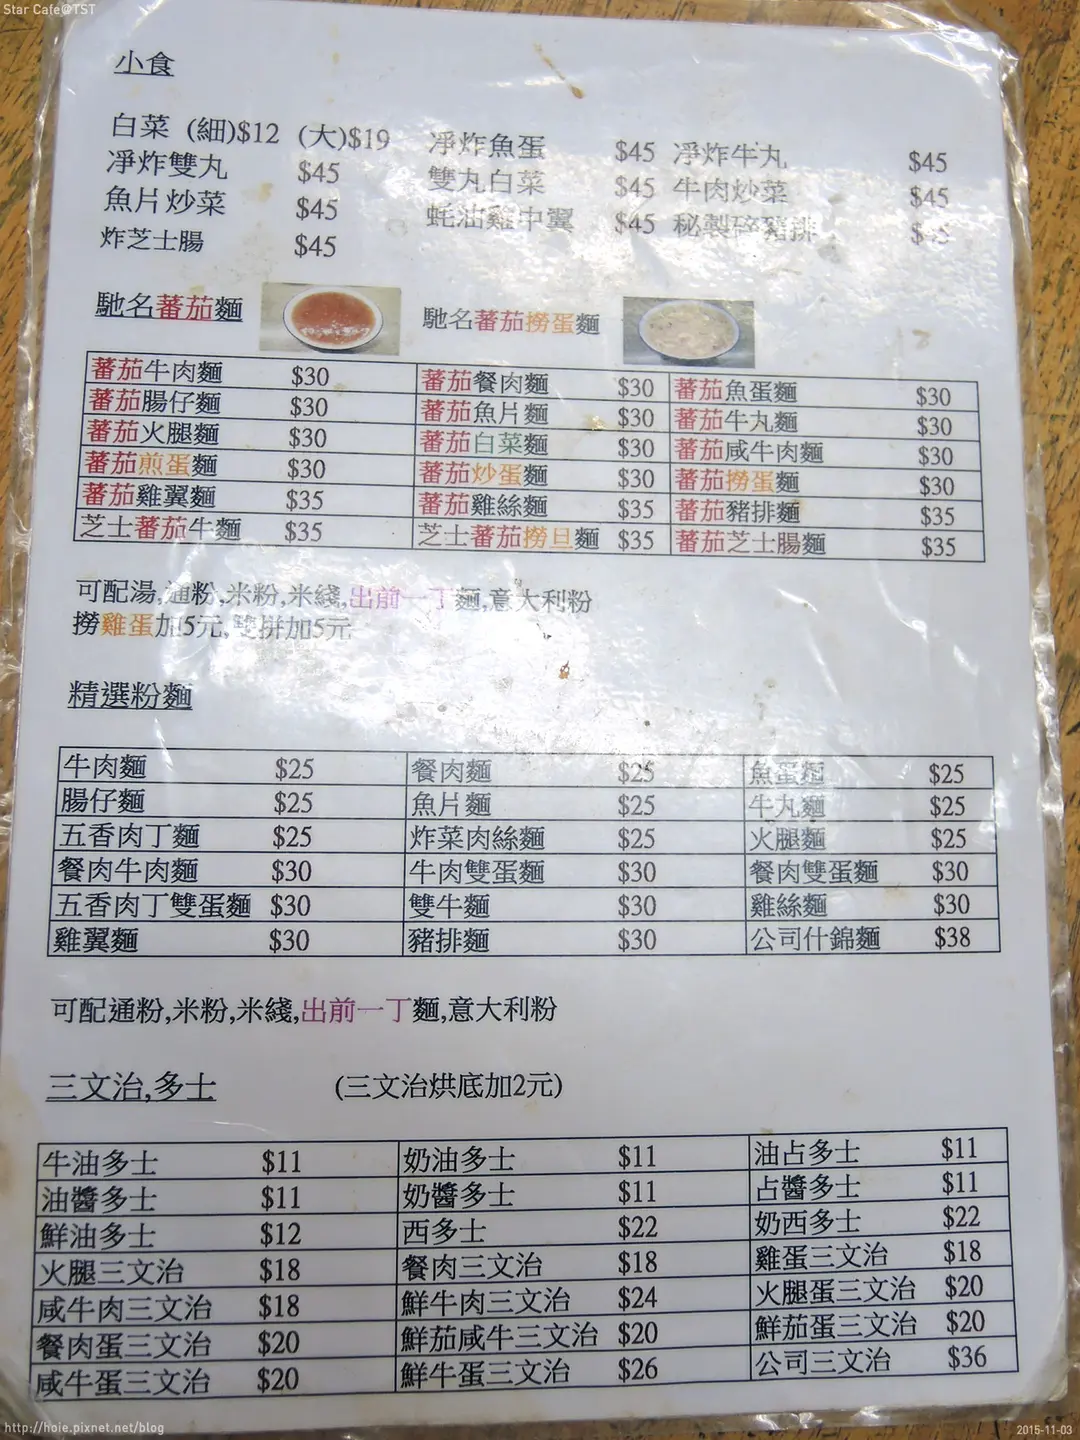 Star Cafe@TST
小食
白菜 (細)$12 (大)$19 凈炸魚蛋 $45 凈炸牛丸 $45
凈炸雙丸 $45 雙丸白菜 $45 牛肉炒菜 $45
魚片炒菜 $45 蚝油雞中翼 $45 秘製碎豬排 $45
炸芝士腸 $45
馳名蕃茄麵 馳名蕃茄撈蛋麵
蕃茄牛肉麵 $30 蕃茄餐肉麵 $30 蕃茄魚蛋麵 $30
蕃茄腸仔麵 $30 蕃茄魚片麵 $30 蕃茄牛丸麵 $30
蕃茄火腿麵 $30 蕃茄白菜麵 $30 蕃茄咸牛肉麵 $30
蕃茄煎蛋麵 $30 蕃茄炒蛋麵 $30 蕃茄撈蛋麵 $30
蕃茄雞翼麵 $35 蕃茄雞絲麵 $35 蕃茄豬排麵 $35
芝士蕃茄牛麵 $35 芝士蕃茄撈旦麵 $35 蕃茄芝士腸麵 $35
可配湯,通粉,米粉,米綫,出前一丁麵,意大利粉
撈雞蛋加5元,雙拼加5元
精選粉麵
牛肉麵 $25 餐肉麵 $25 魚蛋麵 $25
腸仔麵 $25 魚片麵 $25 牛丸麵 $25
五香肉丁麵 $25 炸菜肉絲麵 $25 火腿麵 $25
餐肉牛肉麵 $30 牛肉雙蛋麵 $30 餐肉雙蛋麵 $30
五香肉丁雙蛋麵 $30 雙牛麵 $30 雞絲麵 $30
雞翼麵 $30 豬排麵 $30 公司什錦麵 $38
可配通粉,米粉,米綫,出前一丁麵,意大利粉
三文治,多士 (三文治烘底加2元)
牛油多士 $11 奶油多士 $11 油占多士 $11
油醬多士 $11 奶醬多士 $11 占醬多士 $11
鮮油多士 $12 西多士 $22 奶西多士 $22
火腿三文治 $18 餐肉三文治 $18 雞蛋三文治 $18
咸牛肉三文治 $18 鮮牛肉三文治 $24 火腿蛋三文治 $20
餐肉蛋三文治 $20 鮮茄咸牛三文治 $20 鮮茄蛋三文治 $20
咸牛蛋三文治 $20 鮮牛蛋三文治 $26 公司三文治 $36
http://hoie.pixnet.net/blog
2015-11-03